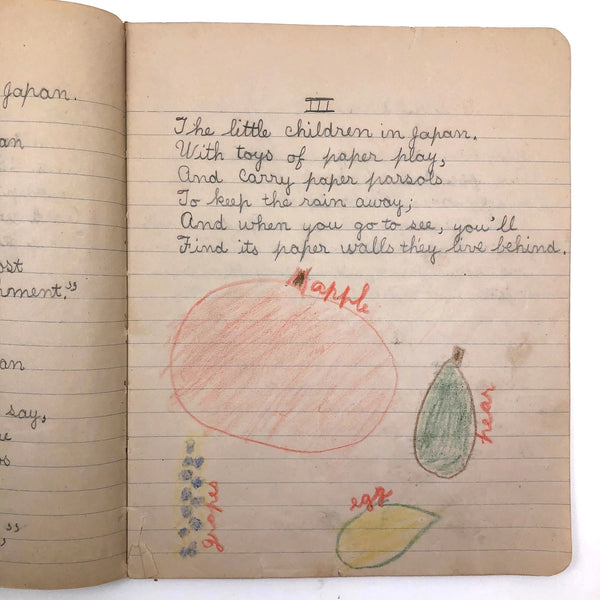 Japan.
an
ost
nment."
an
say,
ue
os
"
III
The little children in Japan.
With toys of paper play,
And carry paper parsols
To keep the rain away;
And when you go to see, you'll
Find its paper walls they live behind.
apple
pear
egg
grapes